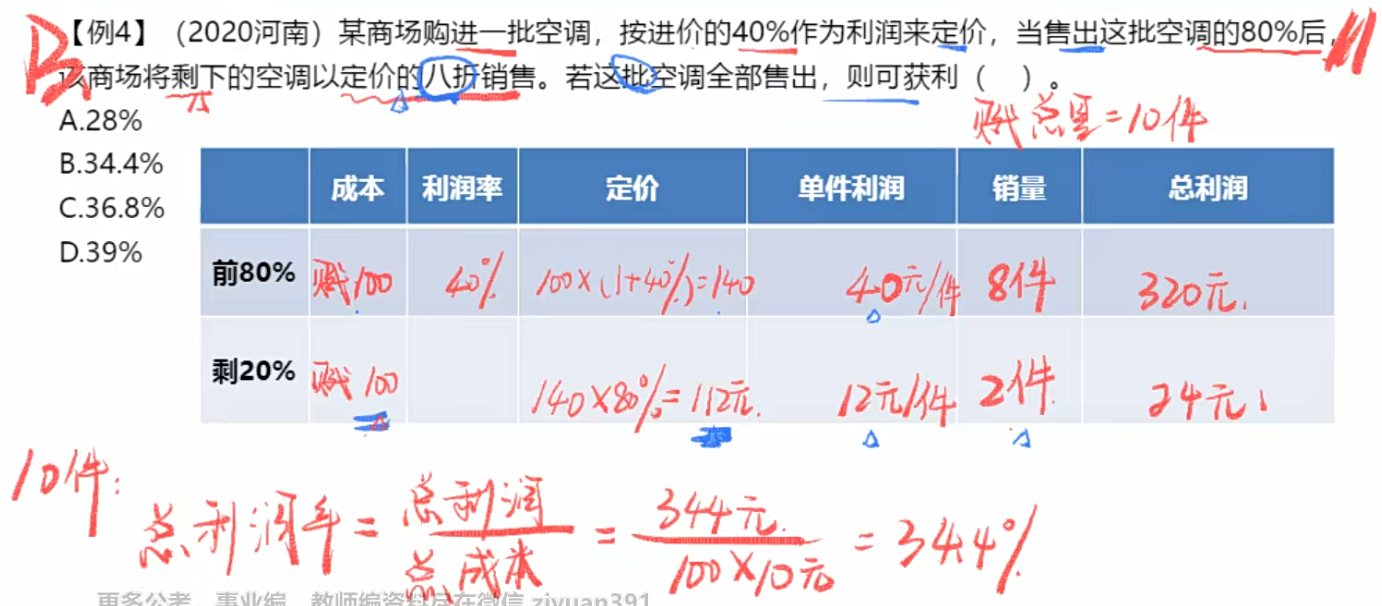 B
【例4】（2020河南）某商场购进一批空调，按进价的40%作为利润来定价，当售出这批空调的80%后，
该商场将剩下的空调以定价的八折销售。若这批空调全部售出，则可获利（ ）。
A.28%
赋总量=10件
B.34.4%
C.36.8%
D.39%
成本 利润率 定价 单件利润 销量 总利润
前80% 赋100 40% 100×(1+40%)=140 40元/件 8件 320元
剩20% 赋100 140×80%=112元 12元/件 2件 24元
10件:
总利润率 = 总利润 / 总成本 = 344元 / 100×10元 = 34.4%
更多公考、事业编、教师编资料尽在微信 ziyuan391